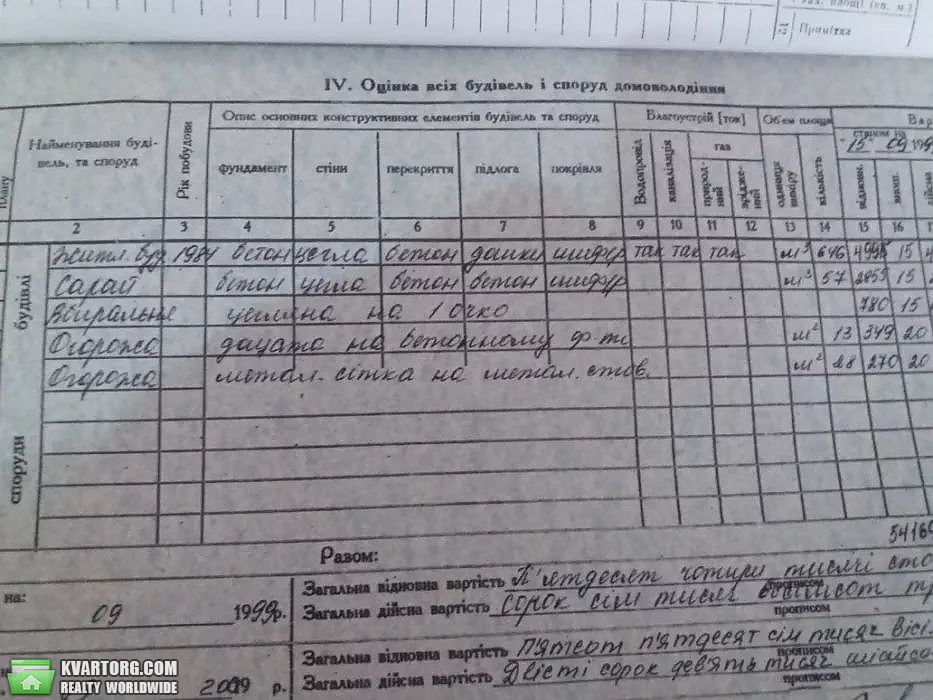 площі (кв. м.)
Примітка
IV. Оцінка всіх будівель і споруд домоволодіння
плану
Найменування буді-
вель, та споруд
Рік побудови
Опис основних конструктивних елементів будівель та споруд
фундамент стіни перекриття підлога покрівля
Благоустрій [так]
Водопровід каналізація
газ
природ-
ний
зрідже-
ний
Об'єм площа
одиниця
виміру
кількість
Вар
станом на
"15" 09 199
відновн. знош. дійсна
2 3 4 5 6 7 8 9 10 11 12 13 14 15 16 1
будівлі
Житл. буд 1984 бетон цегла бетон дошки шифер так так так м³ 646 15
Сарай бетон цегла бетон бетон шифер м³ 57 2855 15
Вбиральня цегляна на 1 очко 780 15
Огорожа дощата на бетонному ф-ті м² 13 349 20
Огорожа метал. сітка на метал. стов. м² 28 270 20
споруди
54169
Разом:
на:
09 1999р.
Загальна відновна вартість П'ятдесят чотири тисячі сто
прописом
Загальна дійсна вартість Сорок сім тисяч вісімсот
прописом
Загальна відновна вартість П'ятсот п'ятдесят сім тисяч вісі
прописом
2009 р.
Загальна дійсна вартість Двісті сорок дев'ять тисяч
прописом
KVARTORG.COM
REALTY WORLDWIDE